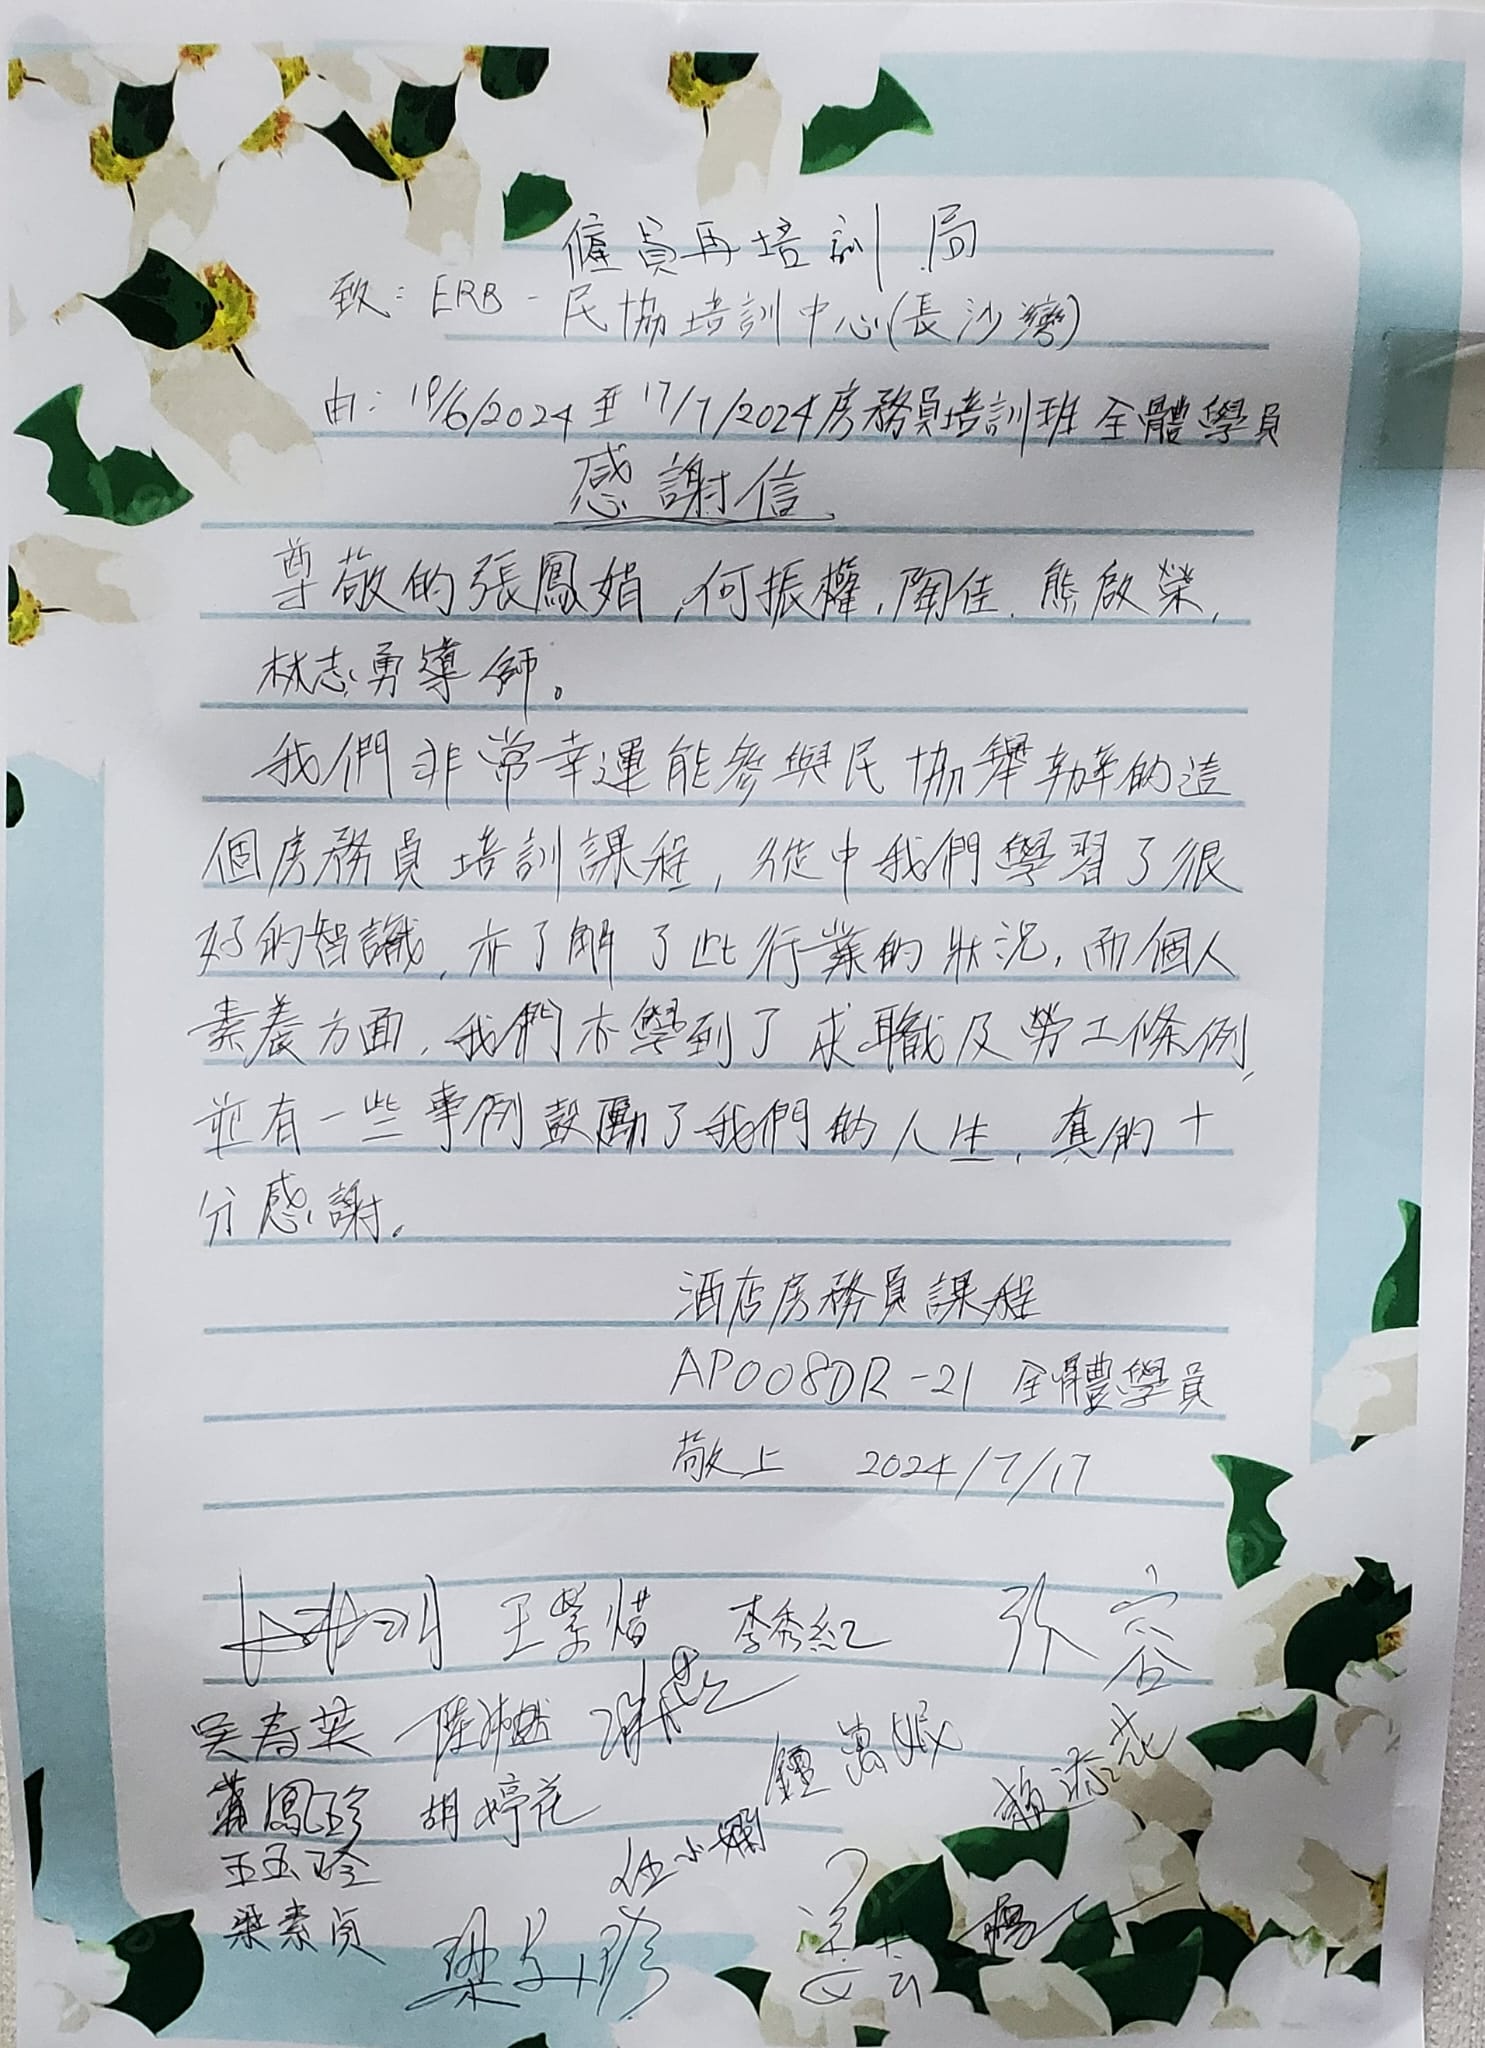 僱員再培訓局
致：ERB - 民協培訓中心(長沙灣)
由：19/6/2024 至 17/7/2024 房務員培訓班 全體學員
感謝信
尊敬的張鳳娟，何振權，陶佳，熊啟榮，
林志勇導師。
我們非常幸運能參與民協舉辦的這
個房務員培訓課程，從中我們學習了很
好的智識，亦了解了此行業的狀況，而個人
素養方面，我們亦學到了求職及勞工條例，
並有一些事例鼓勵了我們的人生，真的十
分感謝。
酒店房務員課程
AP008DR-21 全體學員
敬上 2024/7/17
李秀紅 張容
吳春英
鳳珍 胡婷花
王玉玲 任小嫻
梁素貞